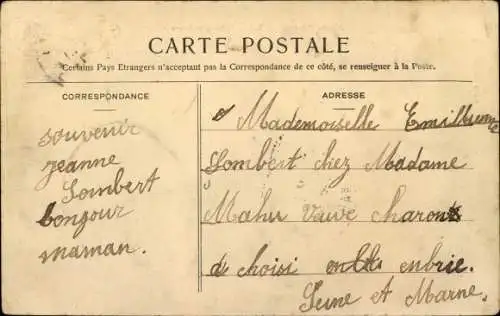 CARTE POSTALE
Certains Pays Etrangers n'acceptant pas la Correspondance de ce côté, se renseigner à la Poste.
CORRESPONDANCE
ADRESSE
souvenir
jeanne
Lombert
bonjour
maman.
Mademoiselle
Lombert chez Madame
Mahu vauve
d choisi enbrie.
Seine et Marne.